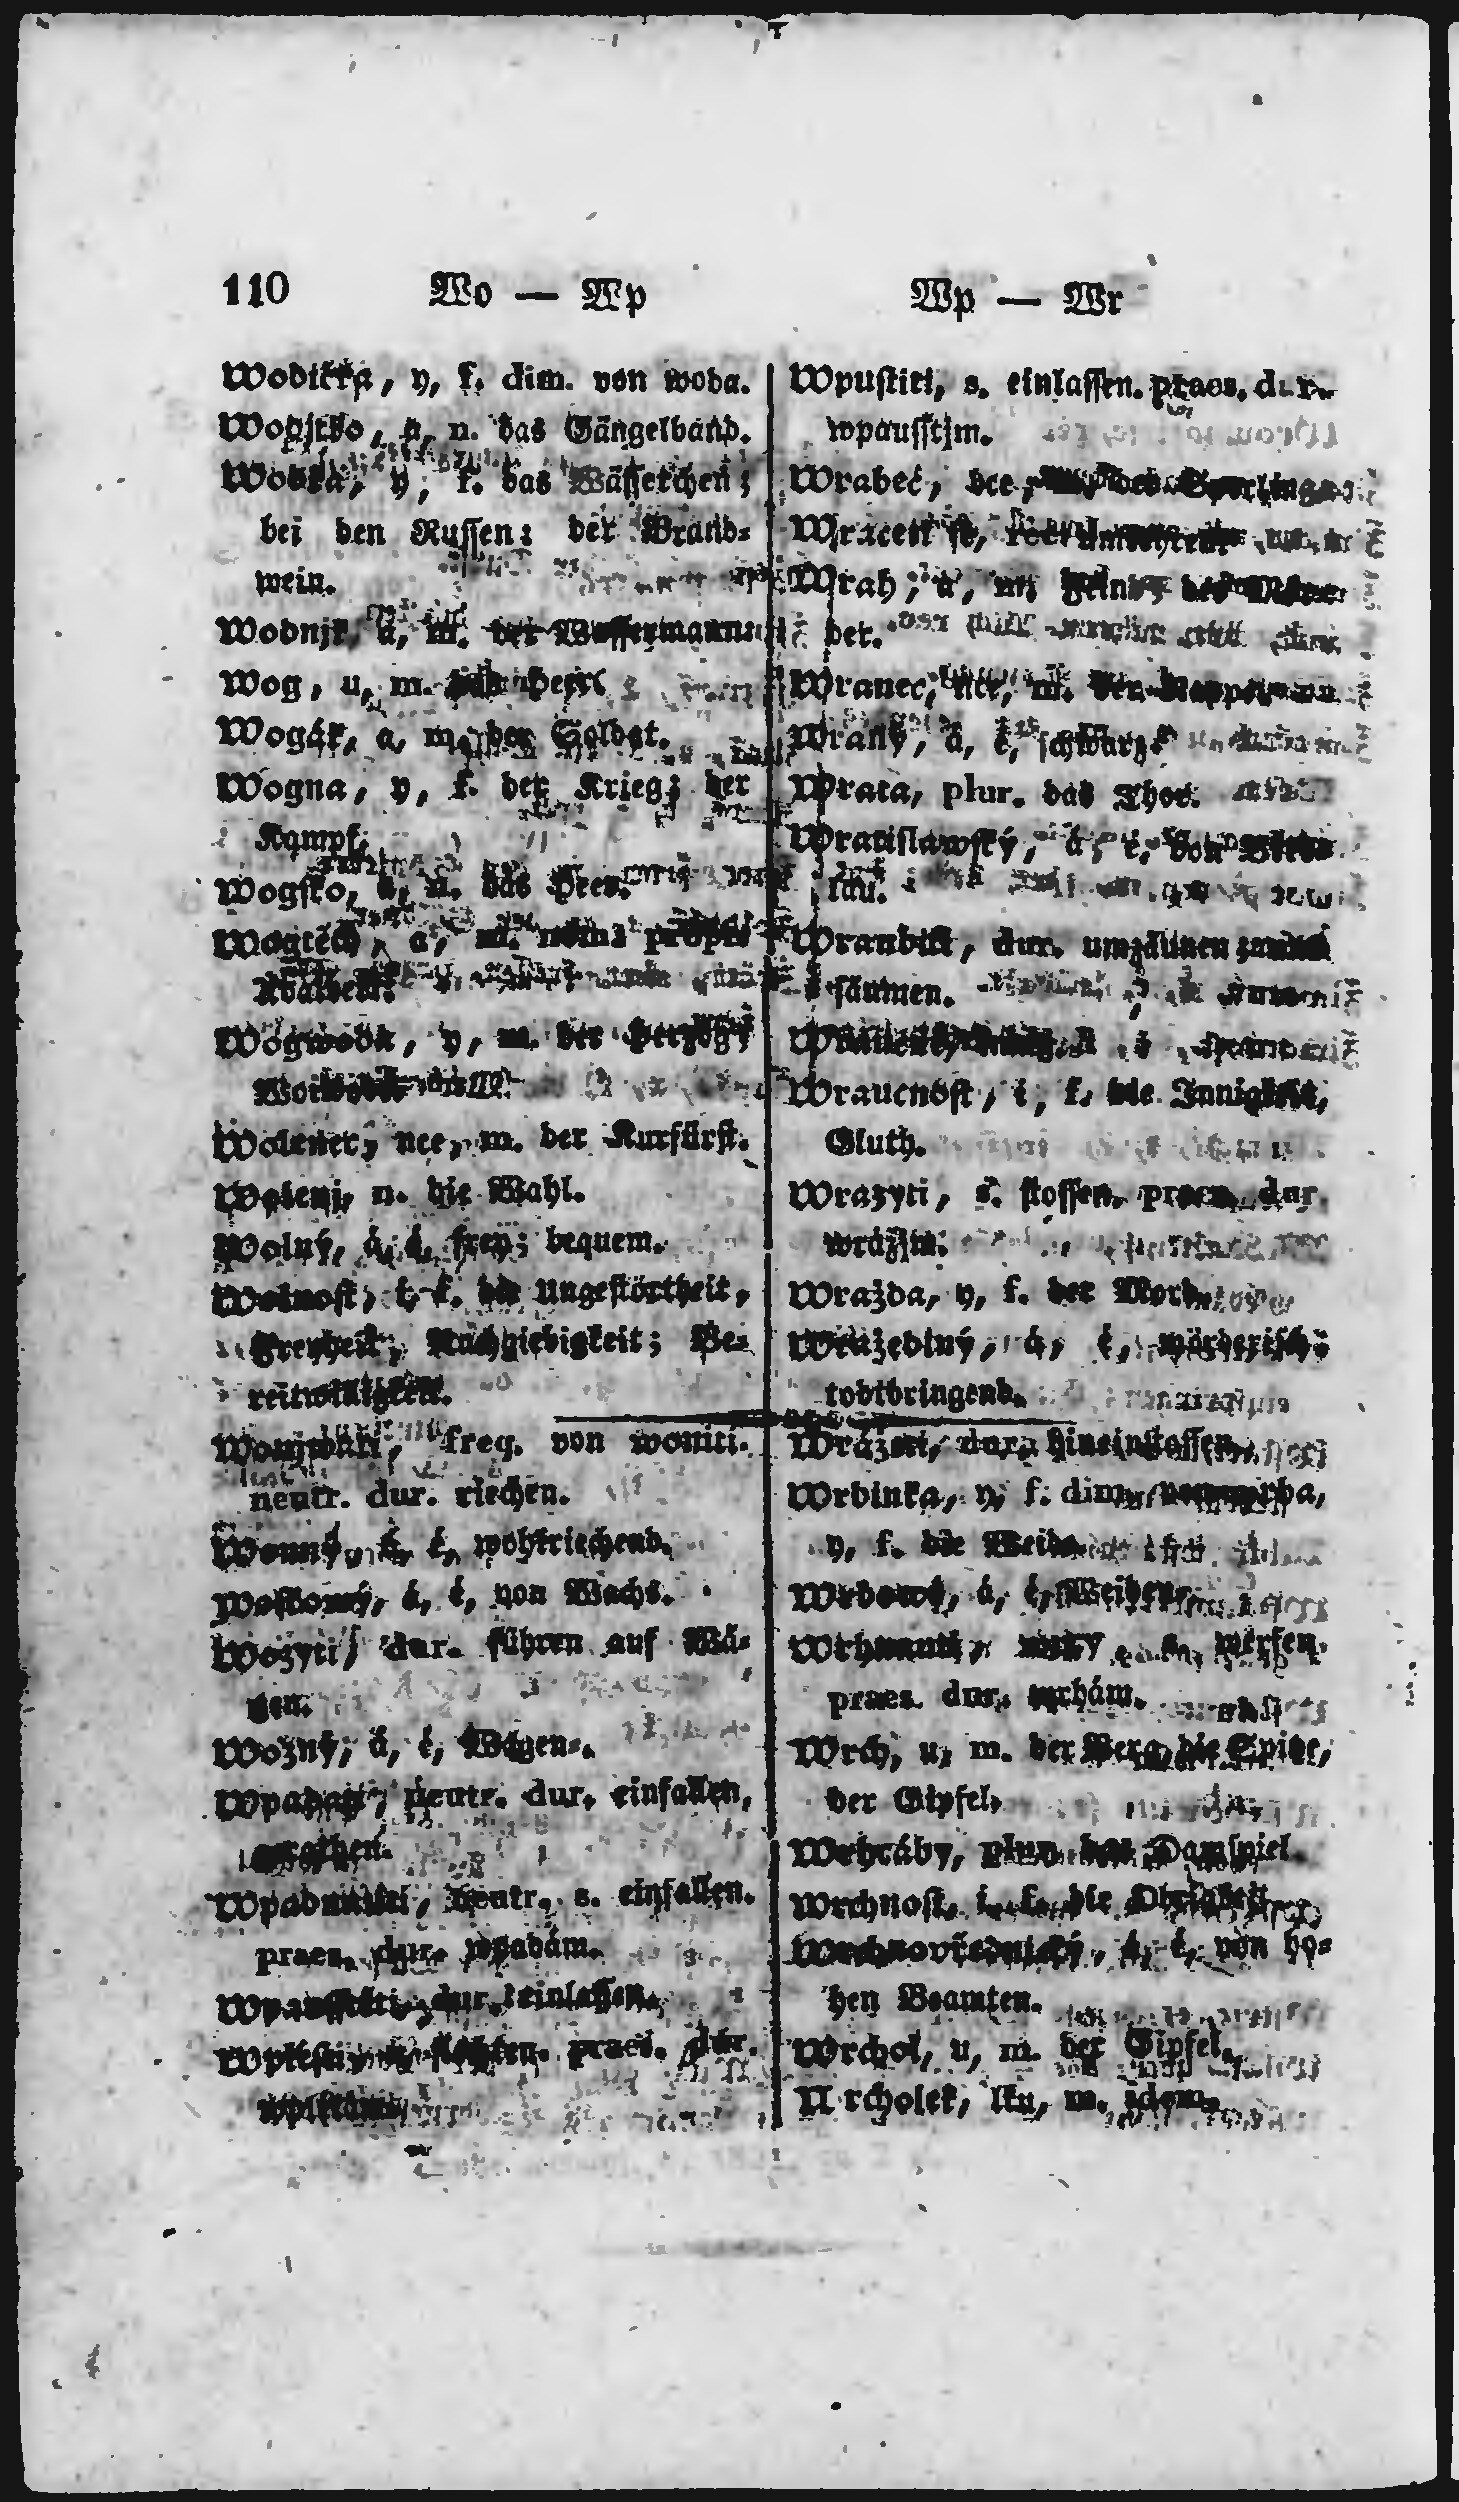 110 Wo — Wp
Wodička, y, f. dim. von woda.
Wodjtko, a, n. das Gängelband.
Wodka, y, f. das Wässerchen;
bei den Russen: der Brand-
wein.
Wodnjk, a, m. der Wassermann.
Wog, u, m. Heer.
Wogák, a, m. der Soldat.
Wogna, y, f. der Krieg; der
Kampf.
Wogsko, a, n. das Heer.
Wogtěch, a, m. nom. propr.
Adalbert.
Wogwoda, y, m. der Herzog,
Wolenec, nce, m. der Kurfürst.
Wolenj, n. die Wahl.
Wolný, á, é, frey; bequem.
Wolnost, i, f. die Ungestörtheit,
Freyheit, Nachgiebigkeit; Be-
reitwilligkeit.
freq. von woniti.
neutr. dur. riechen.
Wonný, á, é, wohlriechend.
Woskowý, á, é, von Wachs.
Wozyti, dur. führen auf Wä-
gen.
Wozný, á, é, Wagen-.
Wpadati, neutr. dur. einfallen,
gerathen.
Wpadnauti, neutr. s. einfallen.
praes. dur. wpadám.
Wpausstěti, dur. einlassen.
Wplésti, flechten. praes. dur.
Wp — Wr
Wpustiti, s. einlassen. praes. dur.
wpausstjm.
Wrabec, bce, Sperling.
Wraceti se,
Wrah, a, m. Feind, der Mör-
der.
Wranec, nce, m. der
Wraný, á, é, schwarz.
Wrata, plur. das Thor.
Wratislawský, á, é, von Bres-
lau.
Wraubiti, dur. umzäunen,
säumen.
Wraucnost, i, f. die Innigkeit,
Gluth.
Wrazyti, s. stossen. praes. dur.
wrážjm.
Wražda, y, f. der Mord.
Wražedlný, á, é, mörderisch,
todtbringend.
Wrážeti, dur. hineinstossen.
Wrbinka, y, f. dim. von wrba,
y, f. die Weide.
Wrbowý, á, é, Weiden-.
Wrhnauti, s. werfen.
praes. dur. wrhám.
Wrch, u, m. der Berg, die Spitze,
der Gipfel.
Wrhcáby, plur. das Damspiel.
Wrchnost, i, f. die Obrigkeit.
Wrchnovřednický, á, é, von ho-
hen Beamten.
Wrchol, u, m. der Gipfel.
Wrcholek, lku, m. idem.